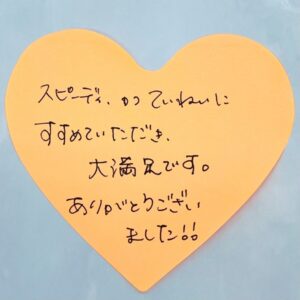 スピーディ、かつていねいに
すすめていただき、
大満足です。
ありがとうござい
ました!!